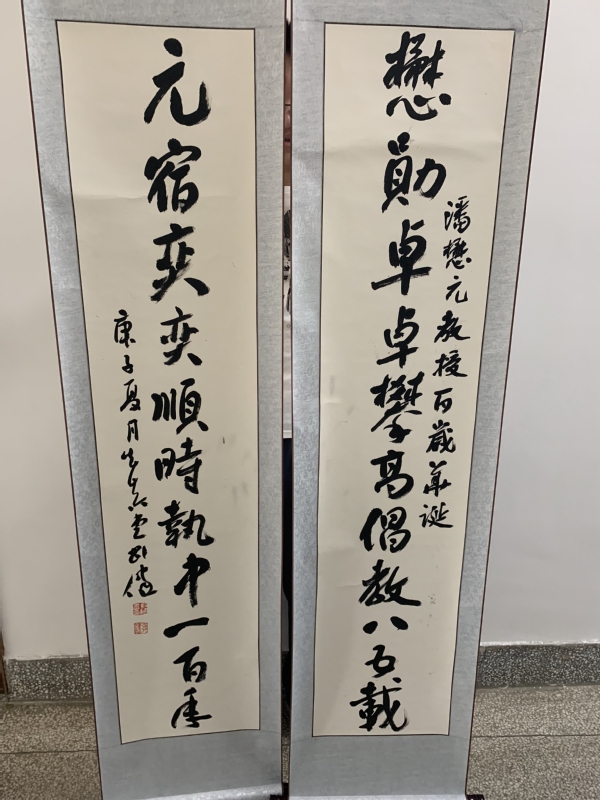 潘懋元教授百歲華誕
懋勛卓卓攀高倡教八五載
元宿奕奕順時執中一百年
庚子夏月